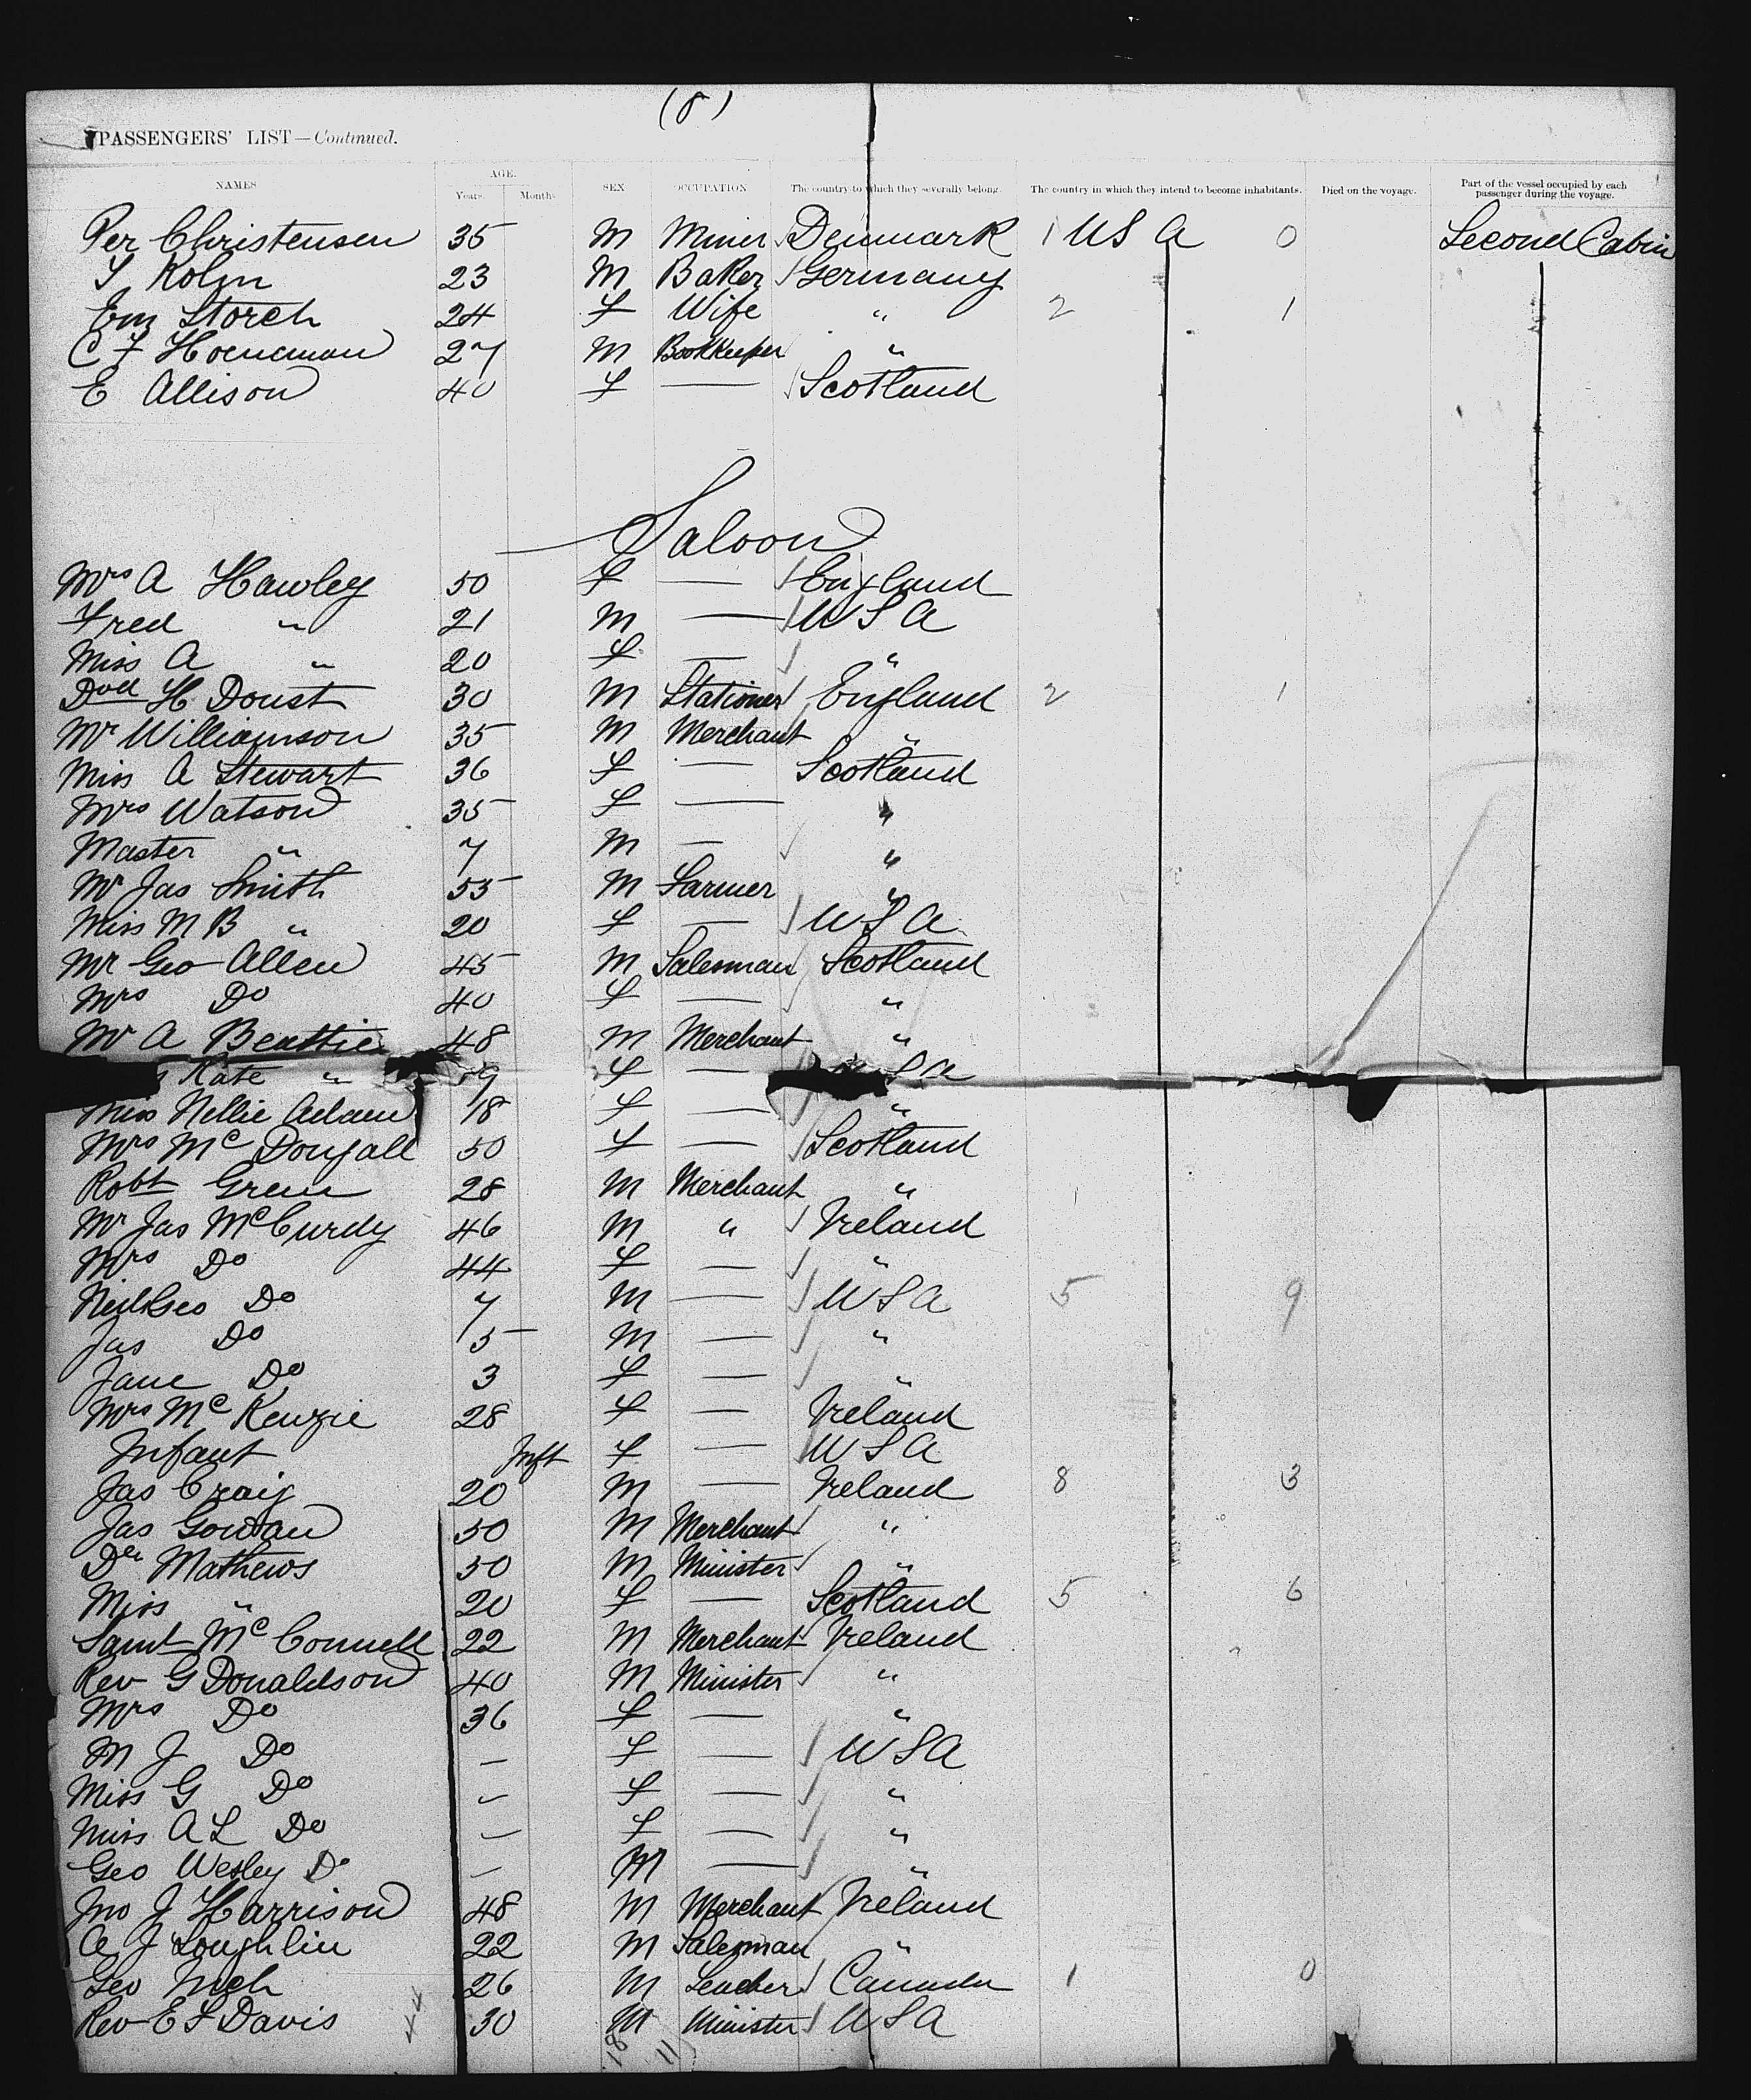 (8)
PASSENGERS' LIST—Continued.
NAMES AGE. Years. Months. SEX OCCUPATION The country to which they severally belong. The country in which they intend to become inhabitants. Died on the voyage. Part of the vessel occupied by each passenger during the voyage.
Per Christensen 35 M Miner Denmark 1 USA 0 Second Cabin
S 23 M Baker Germany
Em Storch 24 f Wife " 2 1
C F Hoeneman 27 M Bookkeeper "
E Allison 40 f — Scotland
Saloon
Mrs A Hawley 50 f — England
Fred " 21 M — USA
Miss A " 20 f — "
Dvd H Doust 30 M Stationer England 2 1
Mr Williamson 35 M Merchant "
Miss A Stewart 36 f — Scotland
Mrs Watson 35 f — "
Master " 7 M — "
Mr Jas Smith 55 M Farmer "
Miss M B " 20 f — USA
Mr Geo Allen 45 M Salesman Scotland
Mrs Do 40 f — "
Mr A Beattie 48 M Merchant "
Kate " f — S A
Miss Nellie Adam 18 f — "
Mrs McDougall 50 f — Scotland
Robt 28 M Merchant "
Mr Jas McCurdy 46 M " Ireland
Mrs Do 44 f — "
Geo Do 7 M — USA 5 9
Jas Do 5 M — "
Jane Do 3 f — "
Mrs McKenzie 28 f — Ireland
Infant Inft f — USA
Jas Craig 20 M — Ireland 8 3
Jas Gowan 50 M Merchant "
Mathews 50 M Minister "
Miss " 20 f — Scotland 5 6
Saml McConnell 22 M Merchant Ireland
Rev G Donaldson 40 M Minister "
Mrs Do 36 f — "
M J Do — f — USA
Miss G Do — f — "
Miss A L Do — f — "
Geo Wesley Do — M — "
Jno J Harrison 48 M Merchant Ireland
A J Loughlin 22 M Salesman "
Geo 26 M Teacher Canada 1 0
Rev E S Davis 30 M Minister USA
18 11